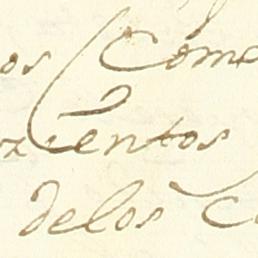 os Come
zientos
delos C